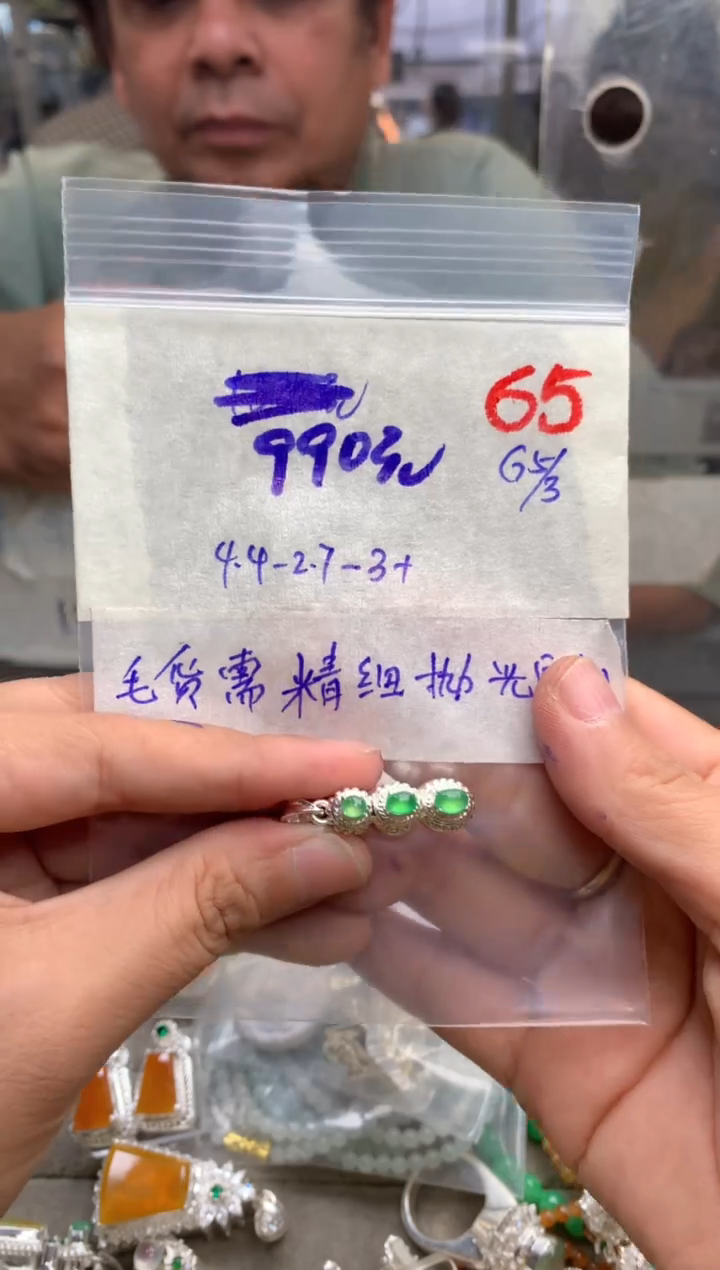 990元
65
65/3
4.4-2.7-3+
毛货需精细抛光